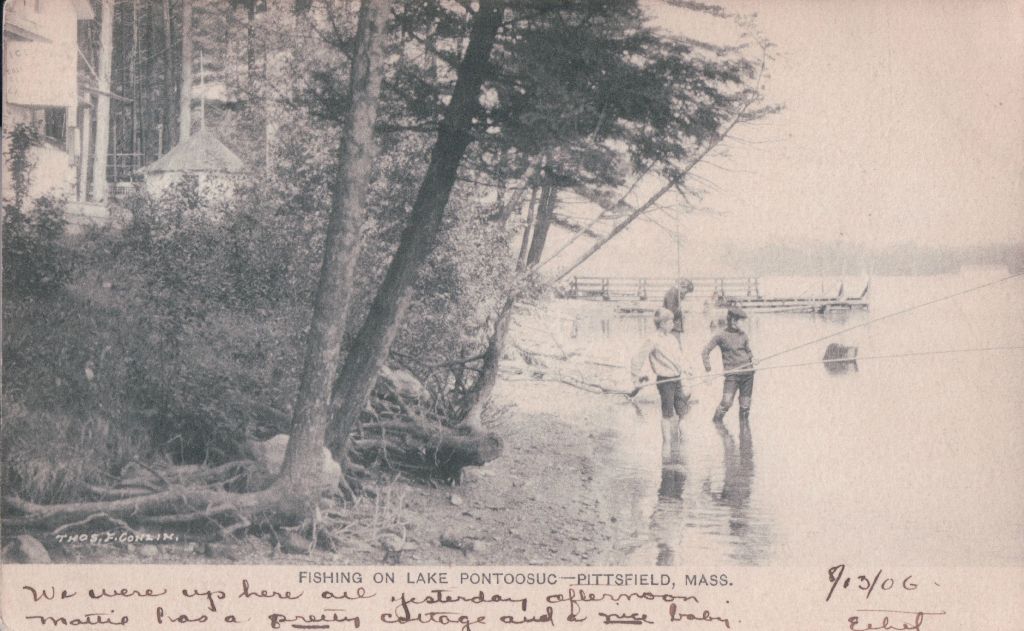 THOS. F. CONLIN.
FISHING ON LAKE PONTOOSUC—PITTSFIELD, MASS.
We were up here all yesterday afternoon.
Mattie has a pretty cottage and a nice baby.
/13/06.
Ethel